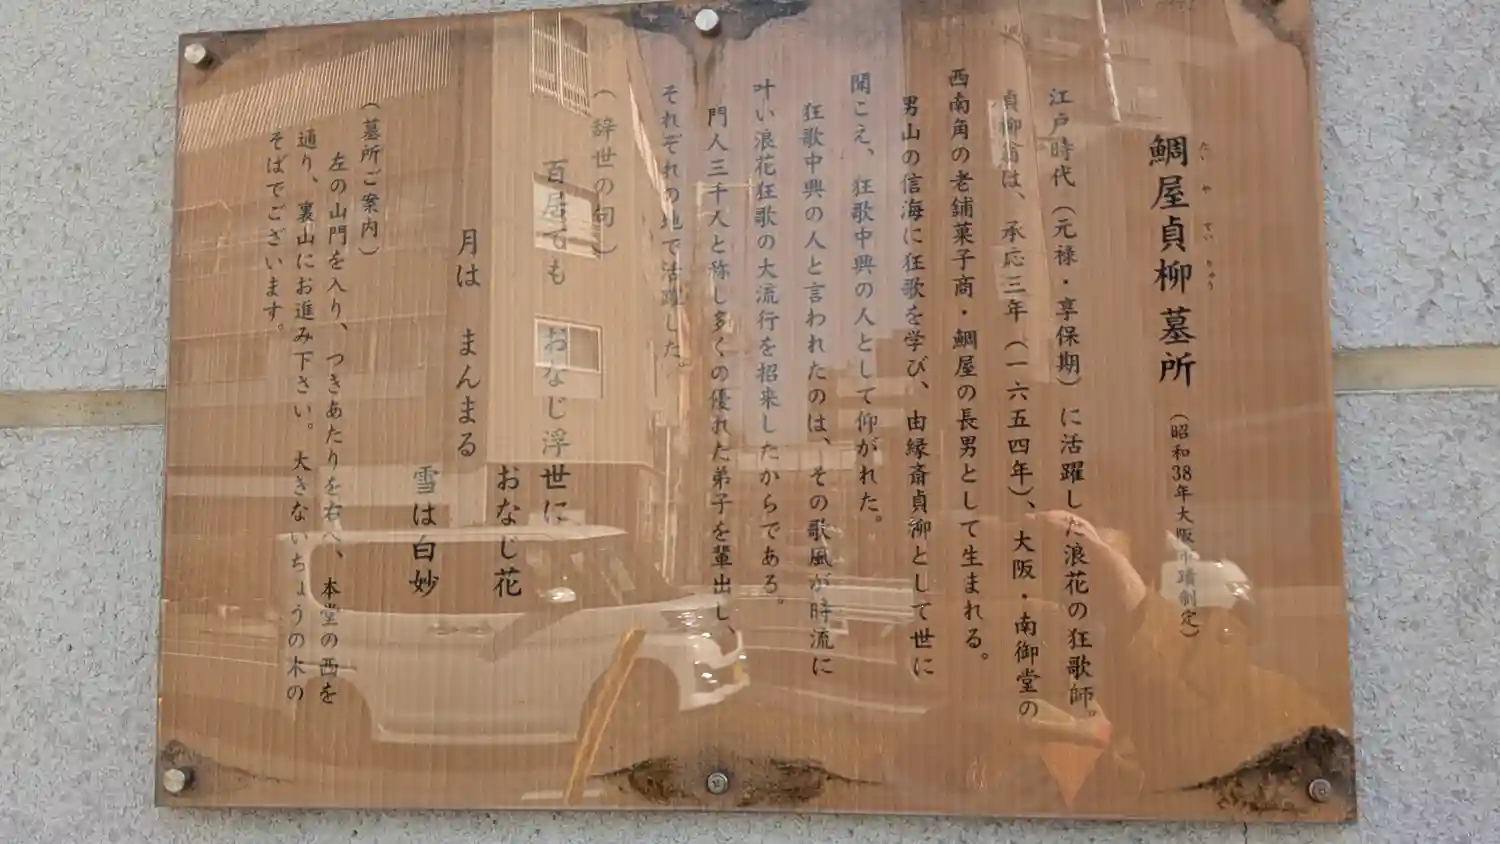 たいやていりゅう
鯛屋貞柳墓所 (昭和38年大阪市蹟制定)
江戸時代(元禄・享保期)に活躍した浪花の狂歌師。
貞柳翁は、承応三年(一六五四年)、大阪・南御堂の
西南角の老舗菓子商・鯛屋の長男として生まれる。
男山の信海に狂歌を学び、由縁斎貞柳として世に
聞こえ、狂歌中興の人として仰がれた。
狂歌中興の人と言われたのは、その歌風が時流に
叶い浪花狂歌の大流行を招来したからである。
門人三千人と称し多くの優れた弟子を輩出し、
それぞれの地で活躍した。
(辞世の句)
百居ても おなじ浮世に
おなじ花
月は まんまる
雪は白妙
(墓所ご案内)
左の山門を入り、つきあたりを右へ、本堂の西を
通り、裏山にお進み下さい。大きないちょうの木の
そばでございます。